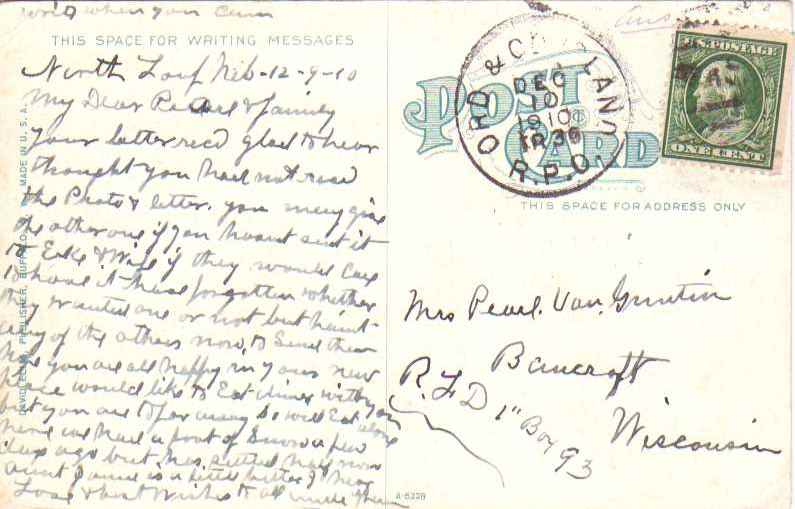 write when you can
THIS SPACE FOR WRITING MESSAGES
North Loup Neb-12-9-10
My Dear Pearl & family
your letter recd glad to hear
thought you had not recd
the Photo & letter. you may give
the other one if you havnt sent it
to & Wife if they would care
to have it have forgotten whether
they wanted one or not but haint
any of the others now, to send them
hope you are all happy in your new
place would like to Eat dinner with you
but you are to far away so will Eat alone
here we had a of Snow a few
days ago but has most now
Aunt is a little better I hear
Love & best Wishes to all
MADE IN U.S.A.
POST CARD
ORD & LAND
DEC
10
1910
TR 36
R.P.O.
U.S. POSTAGE
ONE CENT
THIS SPACE FOR ADDRESS ONLY
Mrs Pearl. Van. Guntin
Bancroft
R.F.D 1" Box 93
Wisconsin